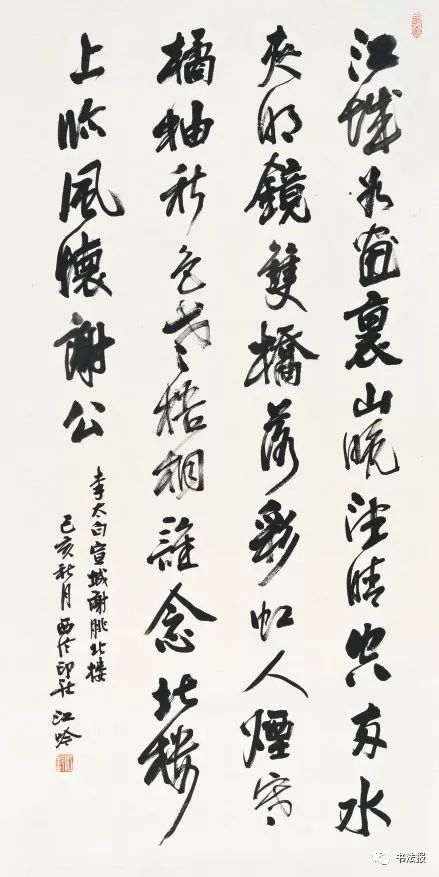 江城如畫裏山晚望晴空两水
夾明鏡雙橋落彩虹人煙寒
橘柚秋色老梧桐誰念北樓
上臨風懷謝公
李太白宣城謝朓北楼
己亥秋月西泠印社江吟
书法报